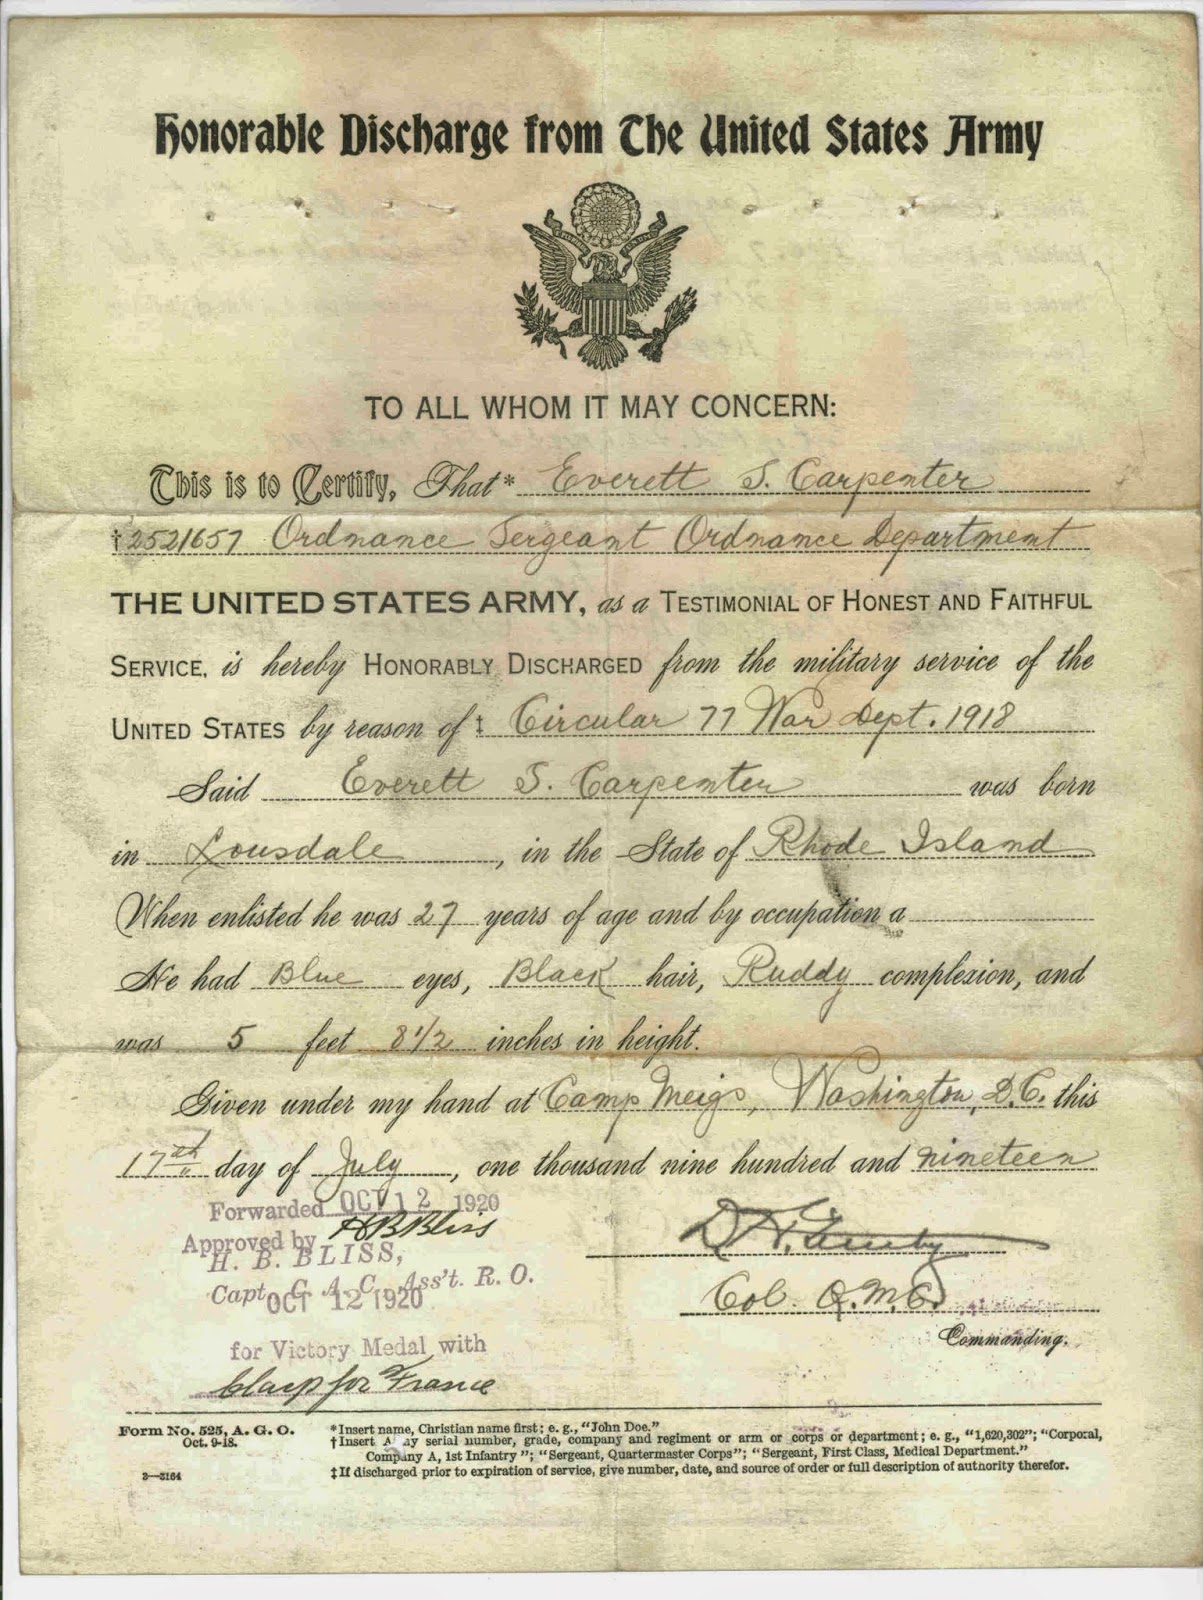 Honorable Discharge from The United States Army
TO ALL WHOM IT MAY CONCERN:
This is to Certify, That* Everett S. Carpenter
†2521657 Ordnance Sergeant Ordnance Department
THE UNITED STATES ARMY, as a TESTIMONIAL OF HONEST AND FAITHFUL
SERVICE, is hereby HONORABLY DISCHARGED from the military service of the
UNITED STATES by reason of ‡ Circular 77 War Dept. 1918
Said Everett S. Carpenter was born
in Lousdale, in the State of Rhode Island
When enlisted he was 27 years of age and by occupation a
He had Blue eyes, Black hair, Ruddy complexion, and
was 5 feet 8 1/2 inches in height.
Given under my hand at Camp Meigs, Washington, D.C. this
17th day of July, one thousand nine hundred and nineteen
Forwarded OCT 12 1920
Approved by H B Bliss
H. B. BLISS,
Capt. C. A. C. Ass't. R. O.
OCT 12 1920
Col. Q.M.C.
Commanding.
for Victory Medal with
Clasp for France
Form No. 525, A. G. O.
Oct. 9-18.
3—3164
*Insert name, Christian name first; e. g., "John Doe."
†Insert Army serial number, grade, company and regiment or arm or corps or department; e. g., "1,620,302"; "Corporal,
Company A, 1st Infantry"; "Sergeant, Quartermaster Corps"; "Sergeant, First Class, Medical Department."
‡If discharged prior to expiration of service, give number, date, and source of order or full description of authority therefor.